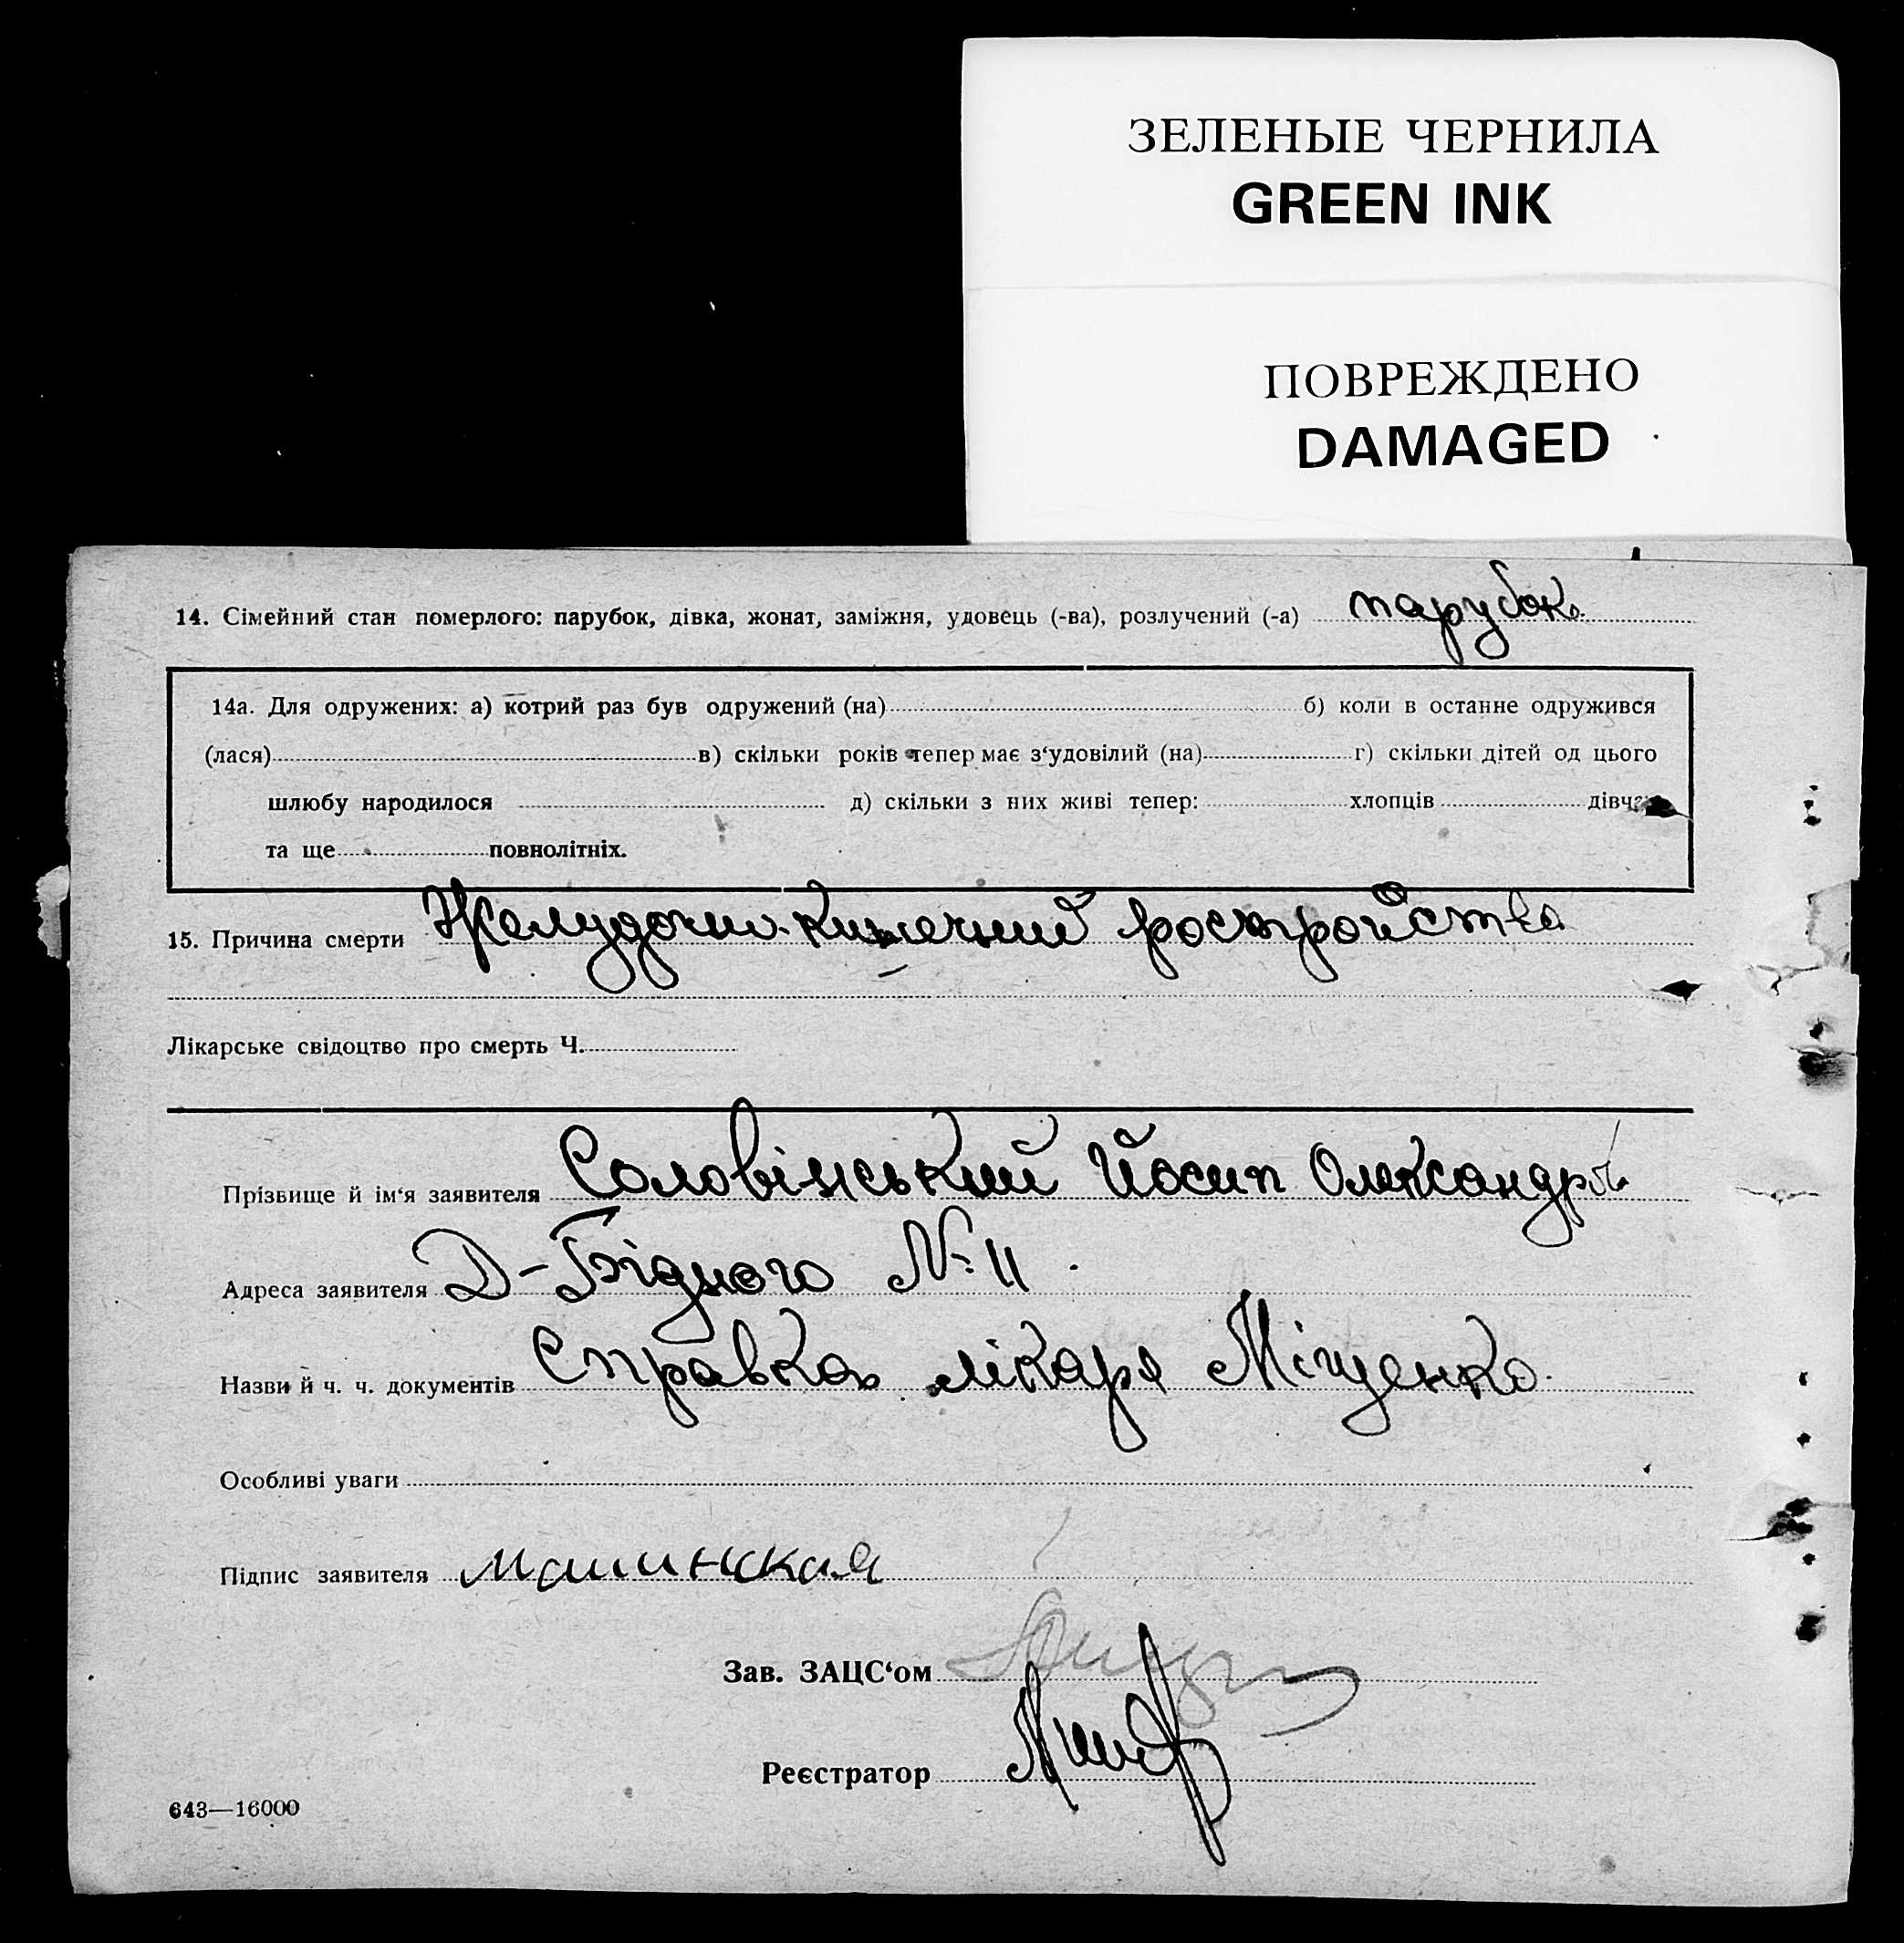 ЗЕЛЕНЫЕ ЧЕРНИЛА
GREEN INK
ПОВРЕЖДЕНО
DAMAGED
14. Сімейний стан померлого: парубок, дівка, жонат, заміжня, удовець (-ва), розлучений (-а) парубок
14а. Для одружених: а) котрий раз був одружений (на) б) коли в останне одружився
(лася) в) скільки років тепер має з‘удовілий (на) г) скільки дітей од цього
шлюбу народилося д) скільки з них живі тепер: хлопців дівча
та ще повнолітніх.
15. Причина смерти Желудочно-Кишечний росстройства
Лікарське свідоцтво про смерть Ч.
Прізвище й ім‘я заявителя Соловінський Йосип Олександрів
Адреса заявителя Д-Бідного № 11
Назви й ч. ч. документів Справка лікаря Міщенко
Особливі уваги
Підпис заявителя
Зав. ЗАЦС‘ом
Реєстратор
643—16000